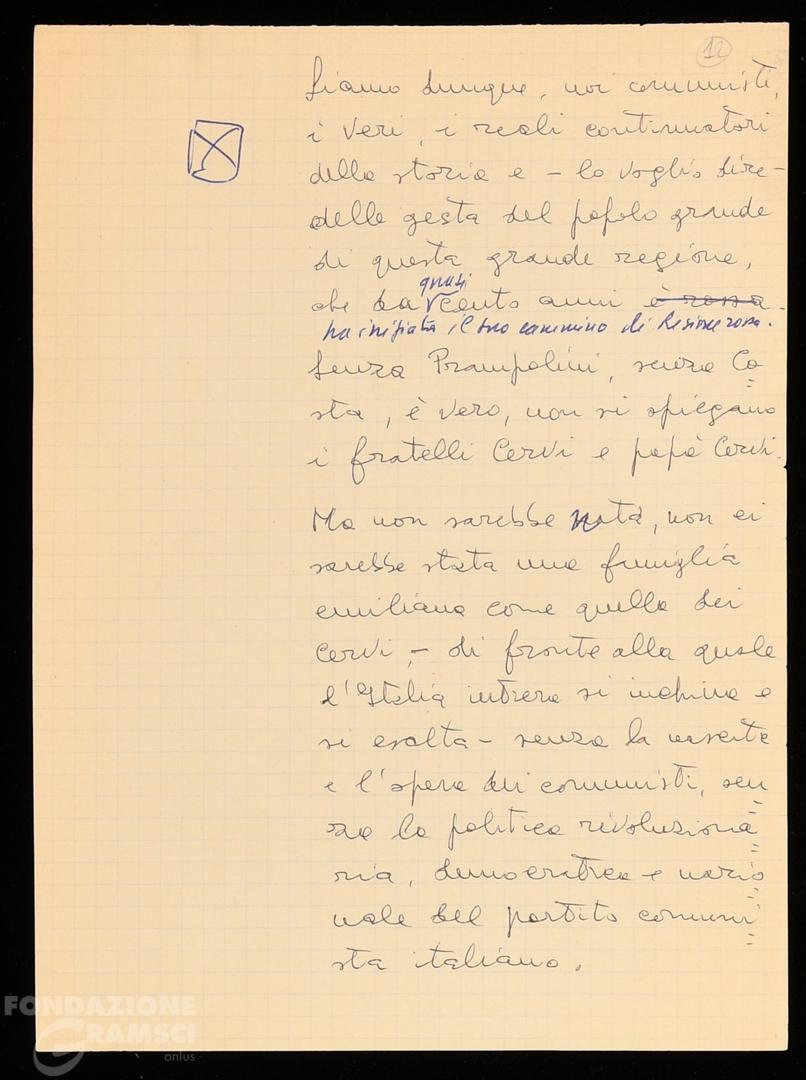 12
Siamo dunque, noi comunisti,
i veri, i reali continuatori
della storia e – lo voglio dire –
delle gesta del popolo grande
di questa grande regione,
che da quasi cento anni è rossa
ha iniziato il suo cammino di Regione rossa.
Senza Prampolini, senza Co=
sta, è vero, non si spiegano
i fratelli Cervi e papà Cervi.
Ma non sarebbe nata, non ci
sarebbe stata una famiglia
emiliana come quella dei
Cervi, – di fronte alla quale
l'Italia intera si inchina e
si esalta – senza la nascita
e l'opera dei comunisti, sen=
za la politica rivoluziona=
ria, democratica e nazio=
nale del partito comuni=
sta italiano.
FONDAZIONE
GRAMSCI
onlus